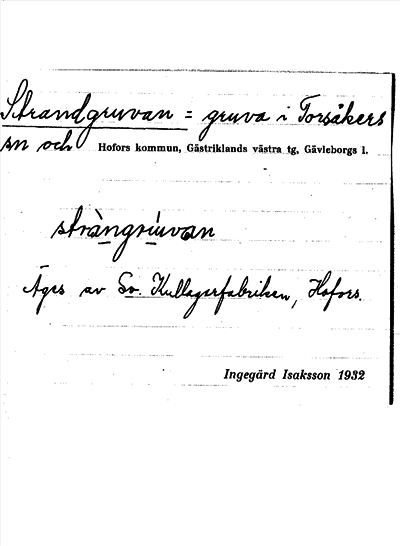 Strandgruvan = gruva i Torsåkers
sn och Hofors kommun, Gästriklands västra tg, Gävleborgs l.
stràngruvan
Äges av Sv. Kullagerfabriken, Hofors.
Ingegärd Isaksson 1932